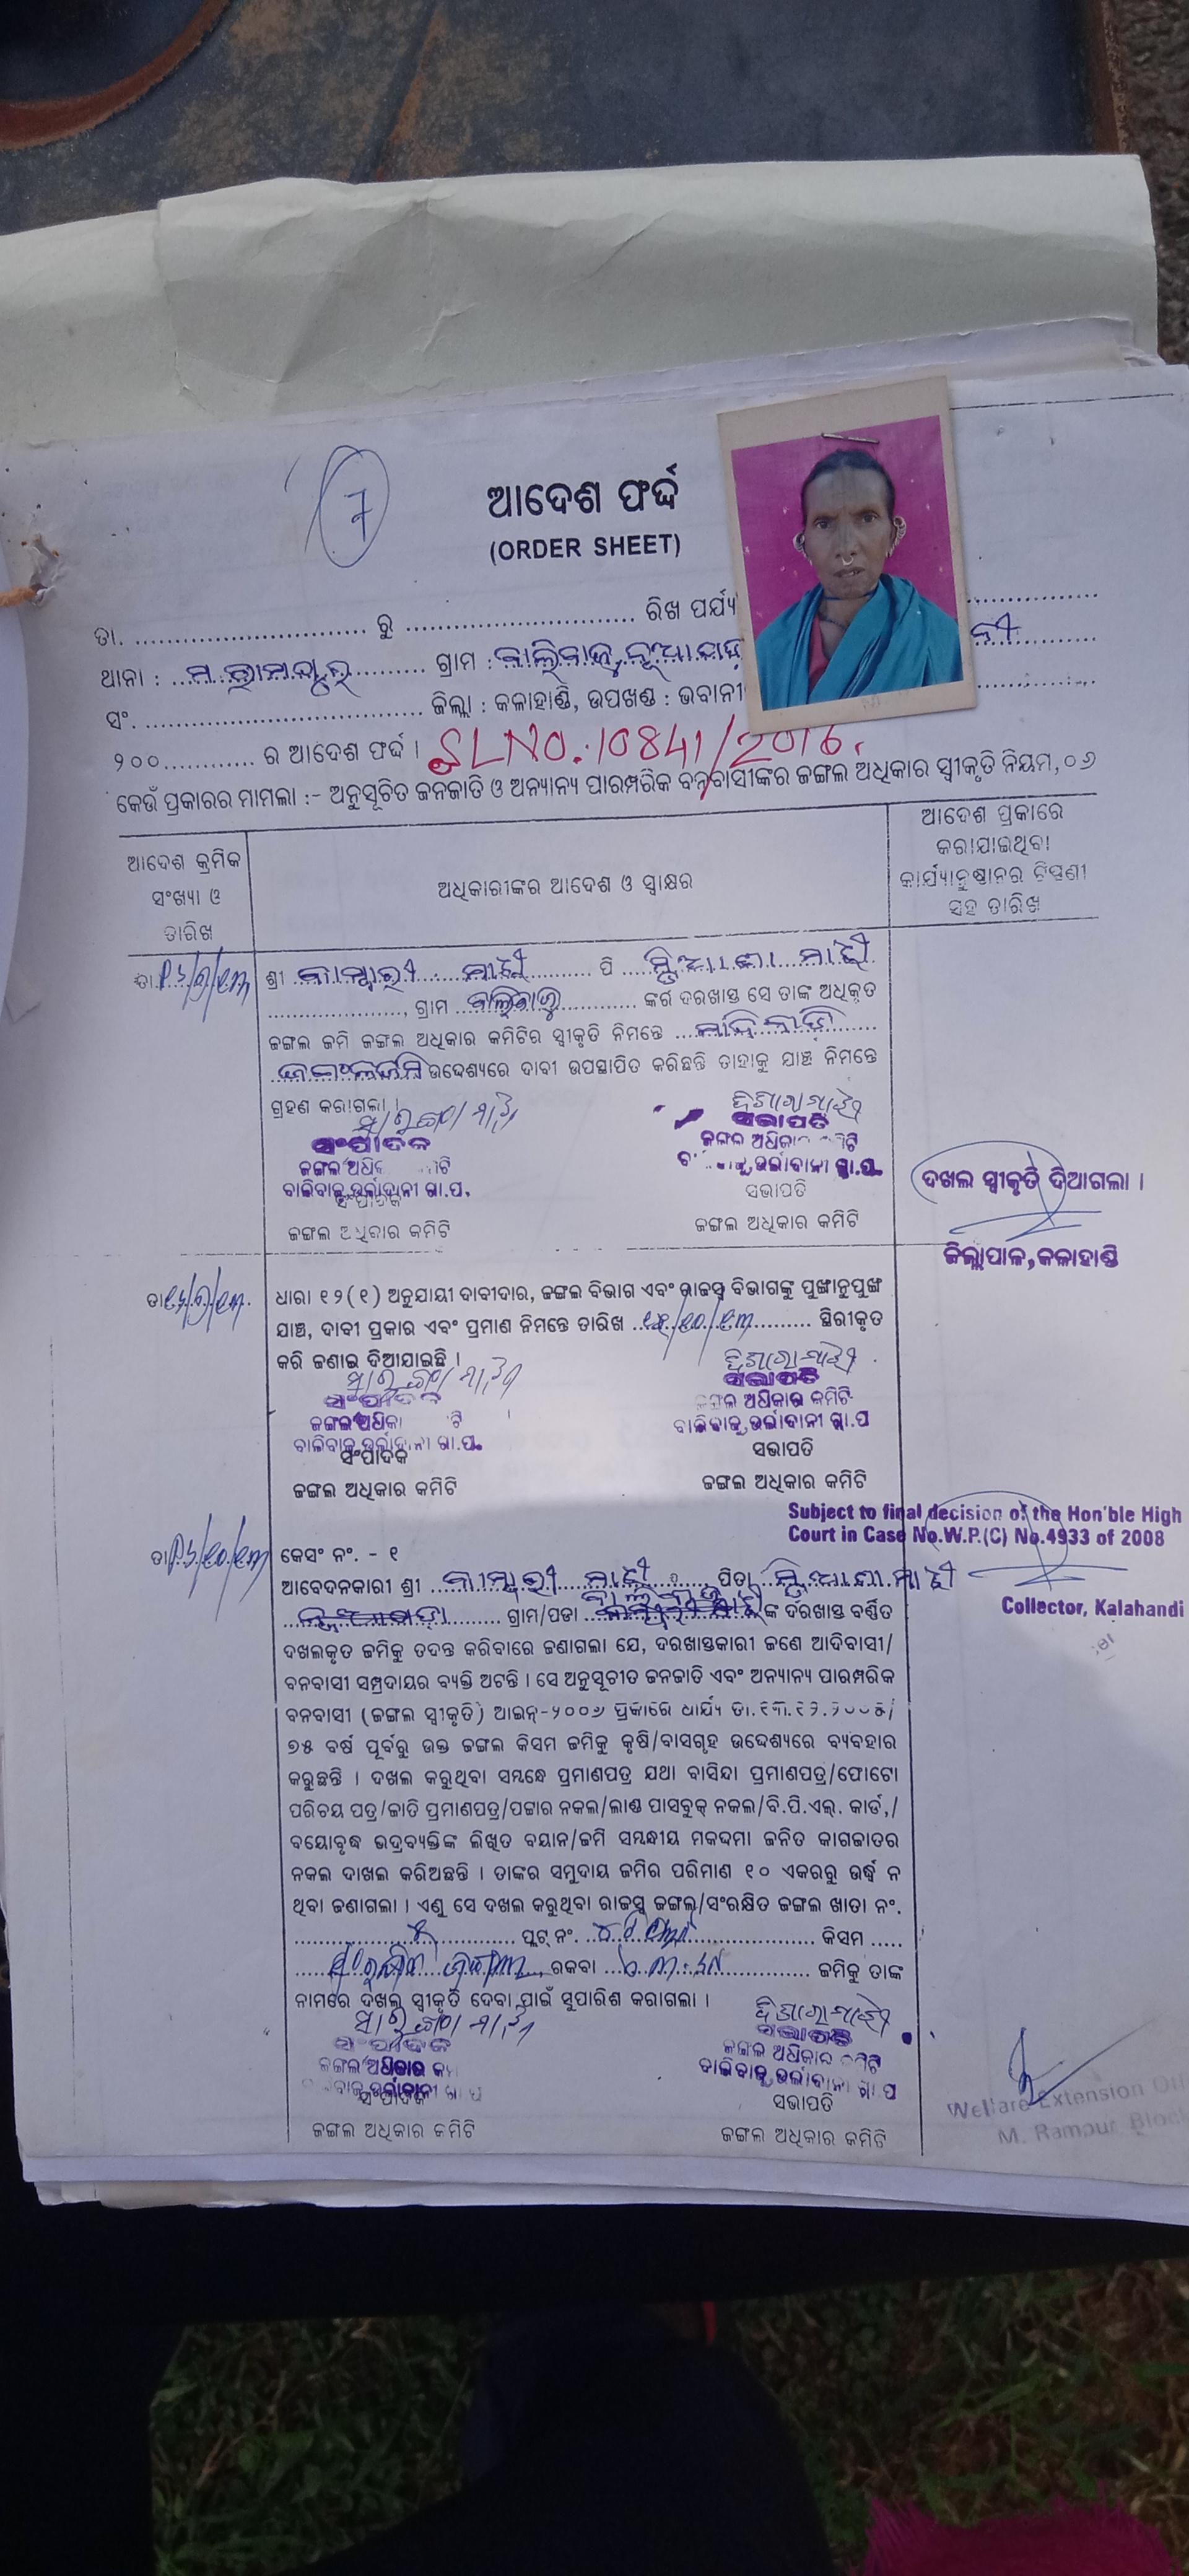 7
ଆଦେଶ ଫର୍ଦ୍ଦ
(ORDER SHEET)
ତା. ............................. ରୁ ............................. ରିଖ ପର୍ଯ୍ୟ
ଥାନା : ..ମ. ରାମପୁର......... ଗ୍ରାମ :
ସଂ. .................................... ଜିଲ୍ଲା : କଳାହାଣ୍ଡି, ଉପଖଣ୍ଡ : ଭବାନୀ
୨୦୦............ ର ଆଦେଶ ଫର୍ଦ୍ଦ । SLNO.:10841/2016.
କେଉଁ ପ୍ରକାରର ମାମଲା :- ଅନୁସୂଚିତ ଜନଜାତି ଓ ଅନ୍ୟାନ୍ୟ ପାରମ୍ପରିକ ବନବାସୀଙ୍କର ଜଙ୍ଗଲ ଅଧିକାର ସ୍ୱୀକୃତି ନିୟମ,୦୬
ଆଦେଶ କ୍ରମିକ
ସଂଖ୍ୟା ଓ
ତାରିଖ
ଅଧିକାରୀଙ୍କର ଆଦେଶ ଓ ସ୍ୱାକ୍ଷର
ଆଦେଶ ପ୍ରକାରେ
କରାଯାଇଥିବା
କାର୍ଯ୍ୟାନୁଷ୍ଠାନର ଟିପ୍ପଣୀ
ସହ ତାରିଖ
ତା.
ଶ୍ରୀ ............ ମାଝୀ ............ ପି ............ ମାଝୀ
....................., ଗ୍ରାମ ..ବାଲିବାଜୁ............ ଙ୍କର ଦରଖାସ୍ତ ସେ ତାଙ୍କ ଅଧିକୃତ
ଜଙ୍ଗଲ ଜମି ଜଙ୍ଗଲ ଅଧିକାର କମିଟିର ସ୍ୱୀକୃତି ନିମନ୍ତେ ............
............ ଉଦ୍ଦେଶ୍ୟରେ ଦାବୀ ଉପସ୍ଥାପିତ କରିଛନ୍ତି ତାହାକୁ ଯାଞ୍ଚ ନିମନ୍ତେ
ଗ୍ରହଣ କରାଗଲା ।
ସଂପାଦକ
ସଭାପତି
ଜଙ୍ଗଲ ଅଧିକାର କମିଟି
ବାଲିବାଜୁ,ଉର୍ଲାଦାନୀ ଗ୍ରା.ପ.
ସଂପାଦକ
ସଭାପତି
ଜଙ୍ଗଲ ଅଧିକାର କମିଟି
ଜଙ୍ଗଲ ଅଧିକାର କମିଟି
ଦଖଲ ସ୍ୱୀକୃତି ଦିଆଗଲା ।
ଜିଲ୍ଲାପାଳ,କଳାହାଣ୍ଡି
ତା.
ଧାରା ୧୨(୧) ଅନୁଯାୟୀ ଦାବୀଦାର, ଜଙ୍ଗଲ ବିଭାଗ ଏବଂ ରାଜସ୍ୱ ବିଭାଗଙ୍କୁ ପୁଙ୍ଖାନୁପୁଙ୍ଖ
ଯାଞ୍ଚ, ଦାବୀ ପ୍ରକାର ଏବଂ ପ୍ରମାଣ ନିମନ୍ତେ ତାରିଖ ............ ସ୍ଥିରୀକୃତ
କରି ଜଣାଇ ଦିଆଯାଇଛି ।
ସଂପାଦକ
ସଭାପତି
ଜଙ୍ଗଲ ଅଧିକାର କମିଟି
ବାଲିବାଜୁ,ଉର୍ଲାଦାନୀ ଗ୍ରା.ପ
ସଂପାଦକ
ସଭାପତି
ଜଙ୍ଗଲ ଅଧିକାର କମିଟି
ଜଙ୍ଗଲ ଅଧିକାର କମିଟି
Subject to final decision of the Hon'ble High
Court in Case No.W.P.(C) No.4933 of 2008
Collector, Kalahandi
ତା.
କେସଂ ନଂ. - ୧
ଆବେଦନକାରୀ ଶ୍ରୀ ............ ମାଝୀ ............ ପିତା ............ ମାଝୀ
............ ଗ୍ରାମ/ପଡା ବାଲିବାଜୁ ଙ୍କ ଦରଖାସ୍ତ ବର୍ଣ୍ଣିତ
ଦଖଲକୃତ ଜମିକୁ ତଦନ୍ତ କରିବାରେ ଜଣାଗଲା ଯେ, ଦରଖାସ୍ତକାରୀ ଜଣେ ଆଦିବାସୀ/
ବନବାସୀ ସମ୍ପ୍ରଦାୟର ବ୍ୟକ୍ତି ଅଟନ୍ତି । ସେ ଅନୁସୂଚୀତ ଜନଜାତି ଏବଂ ଅନ୍ୟାନ୍ୟ ପାରମ୍ପରିକ
ବନବାସୀ (ଜଙ୍ଗଲ ସ୍ୱୀକୃତି) ଆଇନ୍-୨୦୦୬ ପ୍ରକାରେ ଧାର୍ଯ୍ୟ ତା.୧୩.୧୨.୨୦୦୫/
୭୫ ବର୍ଷ ପୂର୍ବରୁ ଉକ୍ତ ଜଙ୍ଗଲ କିସମ ଜମିକୁ କୃଷି/ବାସଗୃହ ଉଦ୍ଦେଶ୍ୟରେ ବ୍ୟବହାର
କରୁଛନ୍ତି । ଦଖଲ କରୁଥିବା ସମ୍ବନ୍ଧେ ପ୍ରମାଣପତ୍ର ଯଥା ବାସିନ୍ଦା ପ୍ରମାଣପତ୍ର/ଫୋଟୋ
ପରିଚୟ ପତ୍ର/ଜାତି ପ୍ରମାଣପତ୍ର/ପଟ୍ଟାର ନକଲ/ଲାଣ୍ଡ ପାସବୁକ୍ ନକଲ/ବି.ପି.ଏଲ୍. କାର୍ଡ,/
ବୟୋବୃଦ୍ଧ ଭଦ୍ରବ୍ୟକ୍ତିଙ୍କ ଲିଖିତ ବୟାନ/ଜମି ସମ୍ବନ୍ଧୀୟ ମକଦ୍ଦମା ଜନିତ କାଗଜାତର
ନକଲ ଦାଖଲ କରିଅଛନ୍ତି । ତାଙ୍କର ସମୁଦାୟ ଜମିର ପରିମାଣ ୧୦ ଏକରରୁ ଉର୍ଦ୍ଧ୍ୱ ନ
ଥିବା ଜଣାଗଲା । ଏଣୁ ସେ ଦଖଲ କରୁଥିବା ରାଜସ୍ୱ ଜଙ୍ଗଲ/ସଂରକ୍ଷିତ ଜଙ୍ଗଲ ଖାତା ନଂ.
............ ପ୍ଲଟ୍ ନଂ. ............ କିସମ .....
............ ରକବା ............ ଜମିକୁ ତାଙ୍କ
ନାମରେ ଦଖଲ ସ୍ୱୀକୃତି ଦେବା ପାଇଁ ସୁପାରିଶ କରାଗଲା ।
ସଂପାଦକ
ସଭାପତି
ଜଙ୍ଗଲ ଅଧିକାର
ଜଙ୍ଗଲ ଅଧିକାର କମିଟି
ସଂପାଦକ
ସଭାପତି
ଜଙ୍ଗଲ ଅଧିକାର କମିଟି
ଜଙ୍ଗଲ ଅଧିକାର କମିଟି
Welfare Extension
M. Rampur Block